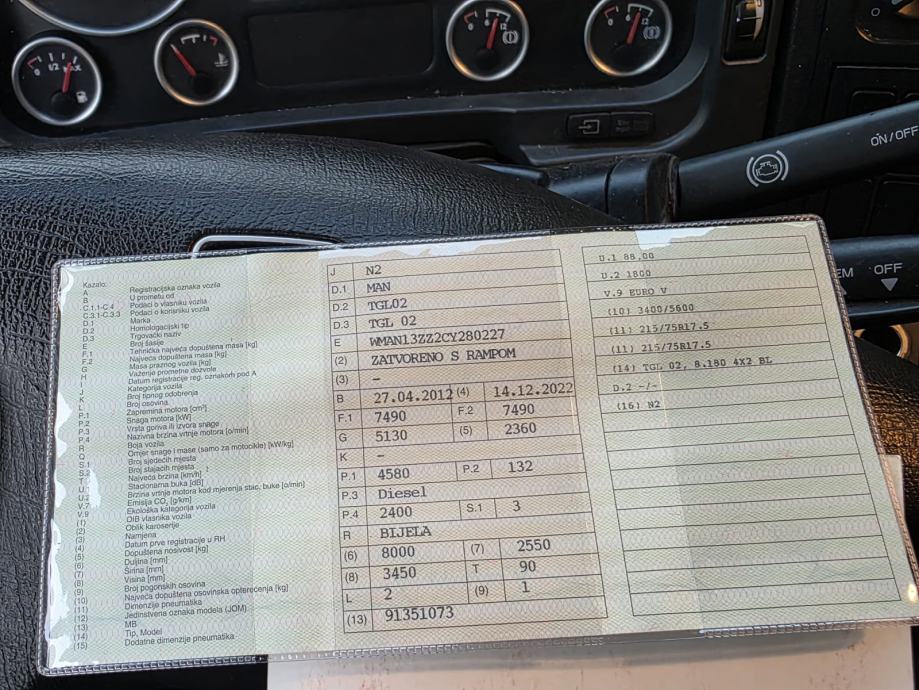 0 1/2 MAX
0 6 12
0 6 12
ON/OFF
EM OFF
Kazalo:
A Registracijska oznaka vozila
B U prometu od
C.1.1-C.4 Podaci o vlasniku vozila
C.3.1-C.3.3 Podaci o korisniku vozila
D.1 Marka
D.2 Homologacijski tip
D.3 Trgovački naziv
E Broj šasije
F.1 Tehnička najveća dopuštena masa [kg]
F.2 Najveća dopuštena masa [kg]
G Masa praznog vozila [kg]
H Važenje prometne dozvole
I Datum registracije reg. oznakom pod A
J Kategorija vozila
K Broj tipnog odobrenja
L Broj osovina
P.1 Zapremina motora [cm³]
P.2 Snaga motora [kW]
P.3 Vrsta goriva ili izvora snage
P.4 Nazivna brzina vrtnje motora [o/min]
R Boja vozila
Q Omjer snage i mase (samo za motocikle) [kW/kg]
S.1 Broj sjedećih mjesta
S.2 Broj stajaćih mjesta
T Najveća brzina [km/h]
U.1 Stacionarna buka [dB]
U.2 Brzina vrtnje motora kod mjerenja stac. buke [o/min]
V.7 Emisija CO₂ [g/km]
V.9 Ekološka kategorija vozila
(1) OIB vlasnika vozila
(2) Oblik karoserije
(3) Namjena
(4) Datum prve registracije u RH
(5) Dopuštena nosivost [kg]
(6) Duljina [mm]
(7) Širina [mm]
(8) Visina [mm]
(9) Broj pogonskih osovina
(10) Najveća dopuštena osovinska opterećenja [kg]
(11) Dimenzije pneumatika
(12) Jedinstvena oznaka modela (JOM)
(13) MB
(14) Tip, Model
(15) Dodatne dimenzije pneumatika
J N2
D.1 MAN
D.2 TGL02
D.3 TGL 02
E WMAN13ZZ2CY280227
(2) ZATVORENO S RAMPOM
(3) -
B 27.04.2012 (4) 14.12.2022
F.1 7490 F.2 7490
G 5130 (5) 2360
K -
P.1 4580 P.2 132
P.3 Diesel
P.4 2400 S.1 3
R BIJELA
(6) 8000 (7) 2550
(8) 3450 T 90
L 2 (9) 1
(13) 91351073
U.1 88,00
U.2 1800
V.9 EURO V
(10) 3400/5600
(11) 215/75R17.5
(11) 215/75R17.5
(14) TGL 02, 8.180 4X2 BL
D.2 -/-
(16) N2